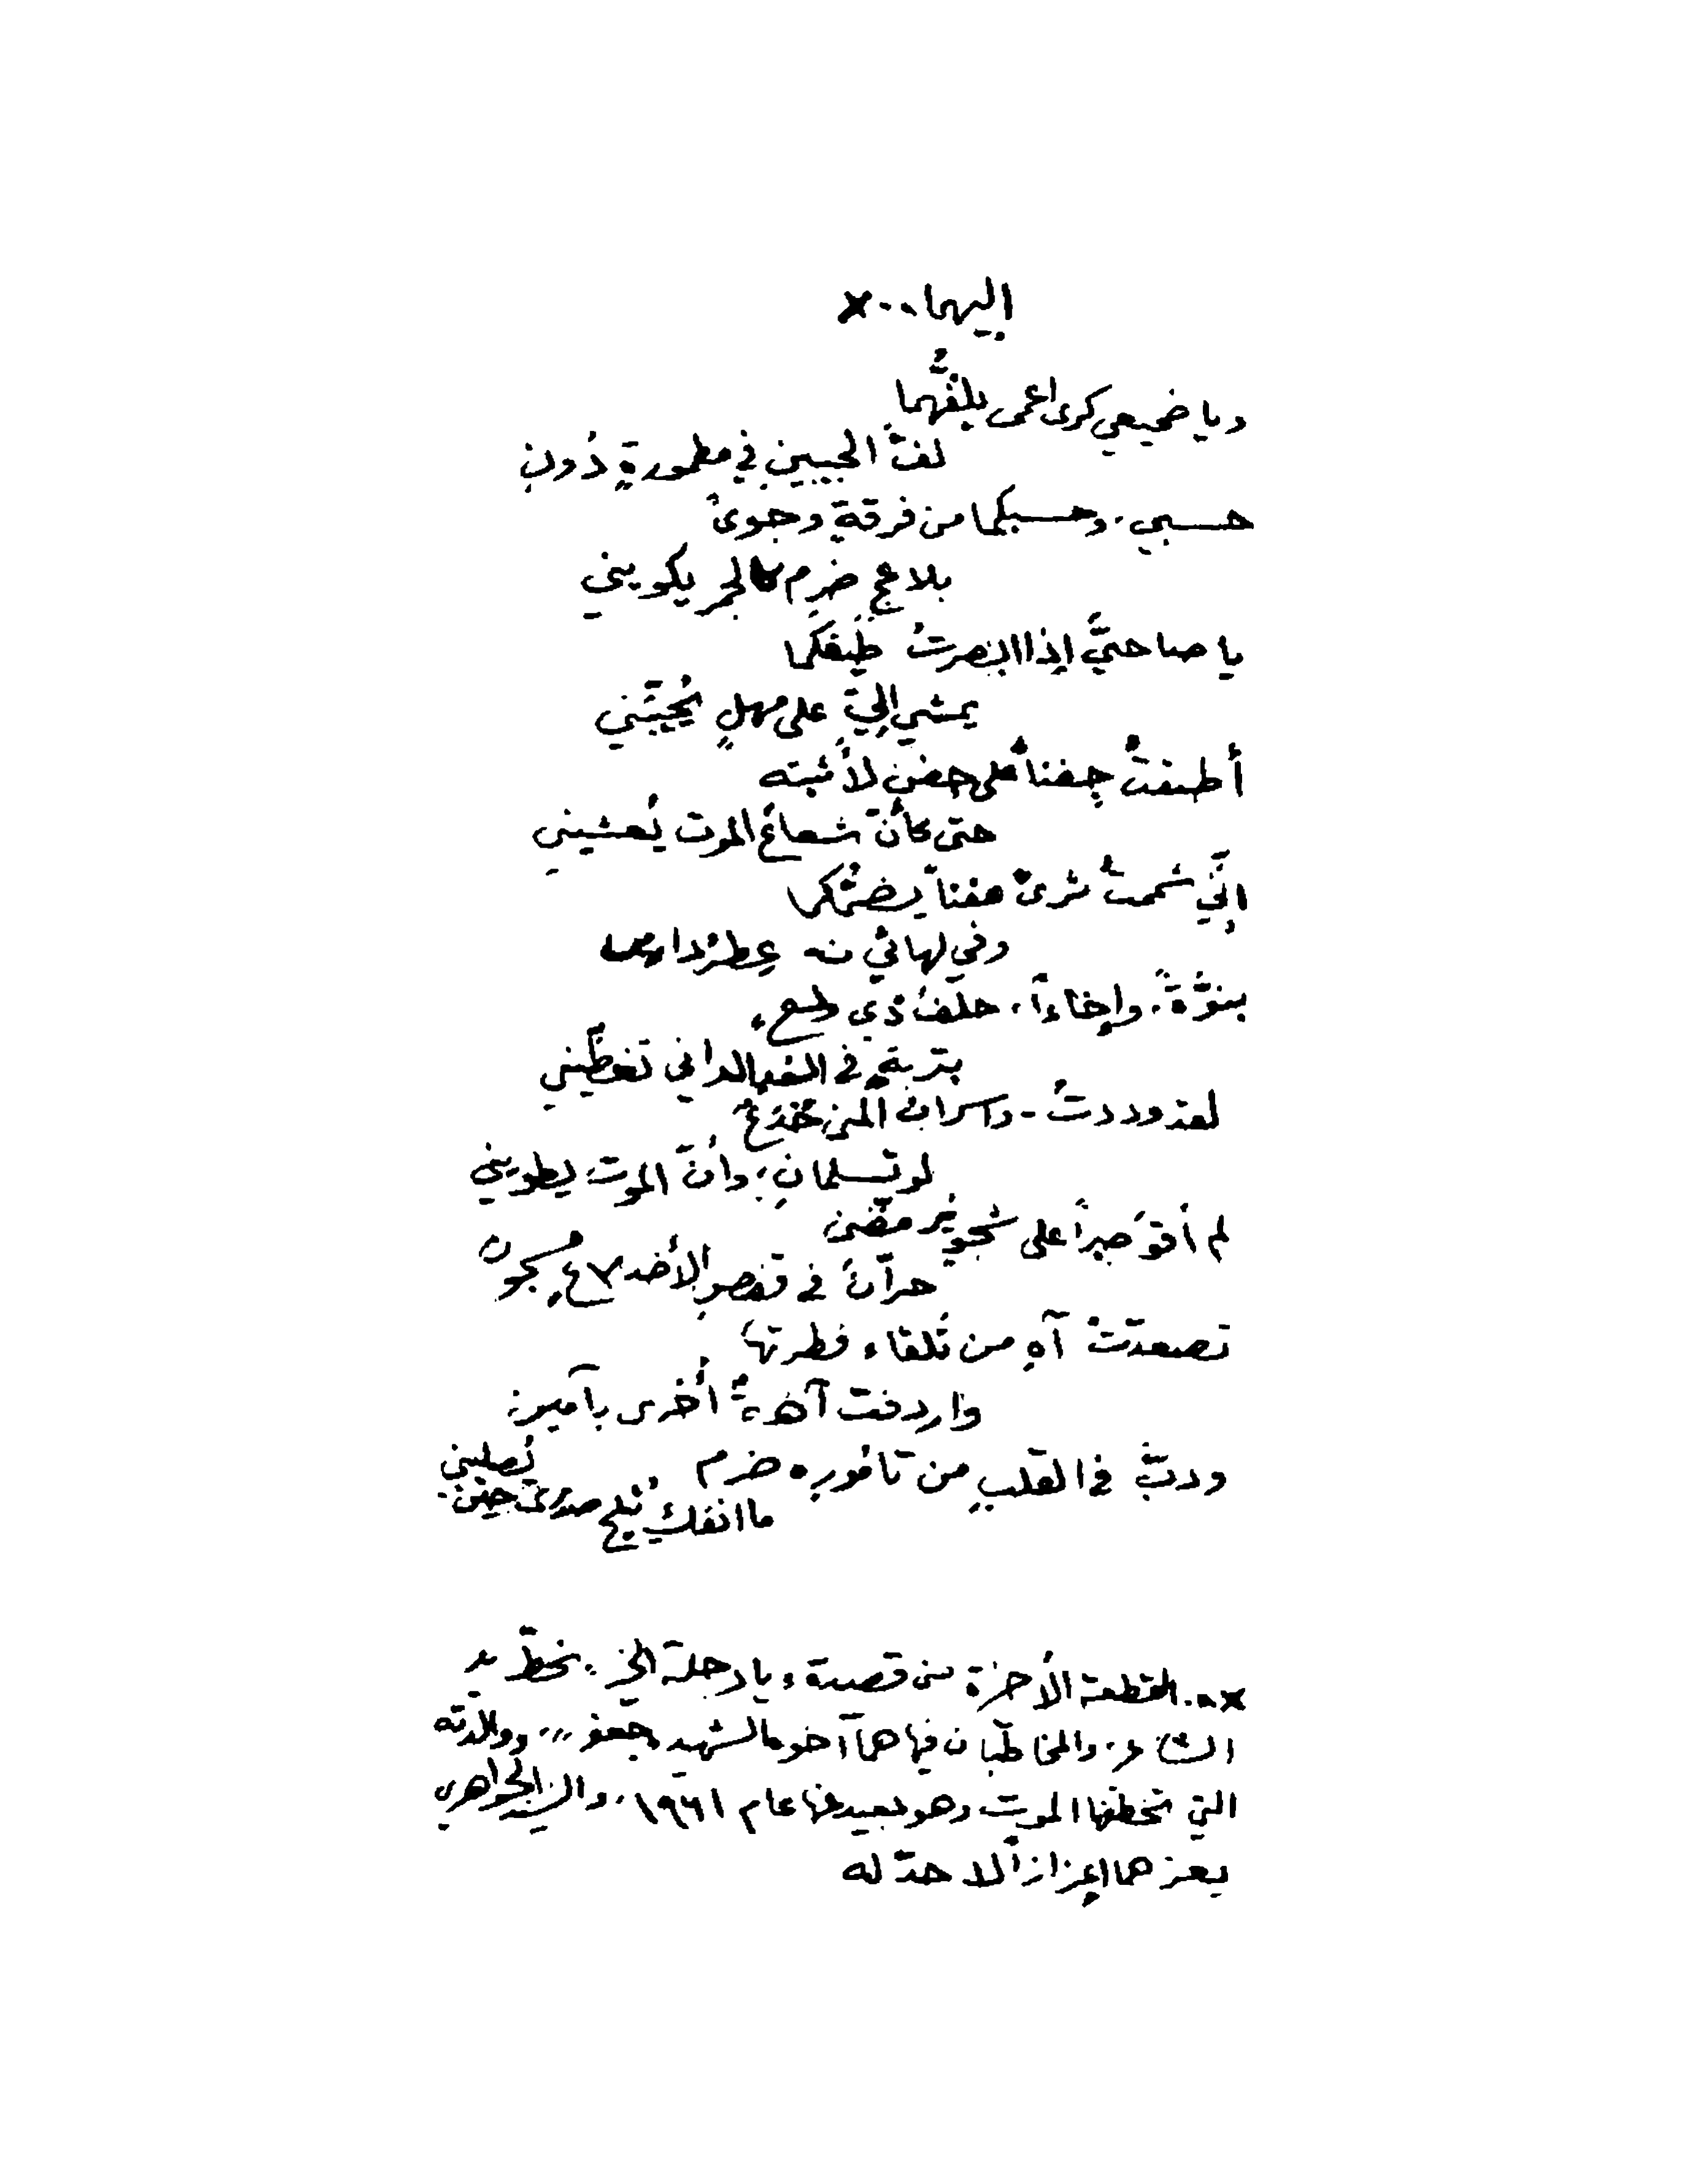 إليهما..×
ويا ضجيعي كرى اعمى يلفُّهما
لفَّ الحبيبين في مطمورةٍ دُونِ
حسبي. وحسبكما من فرقةٍ وجوىً
بلاعجٍ ضرمٍ كالجمر يكويني
يا صاحبيَّ إذا ابصرتُ طيفكما
يمشي إليَّ على مهلٍ يُحييّني
أطبقتُ جفناً على جفنٍ لأثبته
حتى كأنّ شعاعَ الموت يُعشيني
إنّي شممتُ ثرىً عفناً يضمّكما
وفي لهاثي منه عِطرُ دارين
بنوَّةً. وإخاءاً. حلفَ ذي ولعٍ
بتربةٍ في الغد الداني تغطّيني
لقد وددتُ - واسراب المنى خُدَعٌ
لو تسلمانِ، وأنّ الموت يطويني
لم أقوَ صبراً على شجوٍ يرمّضني
حرّانَ في قفصِ الأضلاعِ مسجون
تصعدّتْ آهِ من تلقاء فطرتها
واردفت آهةٌ أخرى بآمين
ودبَّ في القلبِ من تامُورِه ضرم
ما انفكّ يُثلج صدري حين يُصليني
×.. القطعة الأخيرة من قصيدة، يا دجلة الخير. بخطّ يد
الشاعر. والمخاطبان فيها هما أخوه الشهيد جعفر،،. ووالدته
التي تخطفها الموت وهو بعيد عنها عام ١٩٦١. والسيد الجواهري
يعزهما إعزازاً لا حدّ له